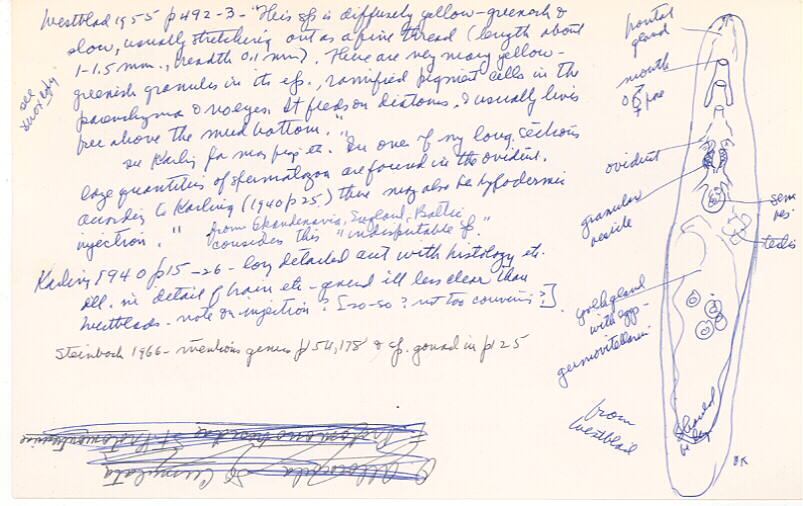 Westblad 1955 p492-3 - "This sp is diffusely yellow-greenish &
slow, usually stretching out as a fine thread (length about
1-1.5 mm., breadth 0.1 mm). There are very many yellow-
greenish granules in its ep., ramified pigment cells in the
parenchyma & no eyes. It feeds on diatoms & usually lives
free above the mud bottom."
see Karling for mor
In one of my long. sections
large quantities of spermatozoa are found in the oviduct.
according to Karling (1940 p25) there may also be hypodermic
injection." from Skandenavia, England, Baltic
considers this "indisputable sp."
Karling 1940 p15-26 - long detailed acct with histology etc.
ill. in detail of brain etc - general ill less clear than
Westblads - note on injection? [so-so? not too convinc ?].
Steinbock 1966 - mentions genus p154, 178 & sp. gonad in p125
see
frontal
gland
mouth
♂♀ pore
oviduct
granular
vesicle
sem
ves.
testis
yolk gland
with egg -
germovitellarium
from
Westblad
should
be
BK